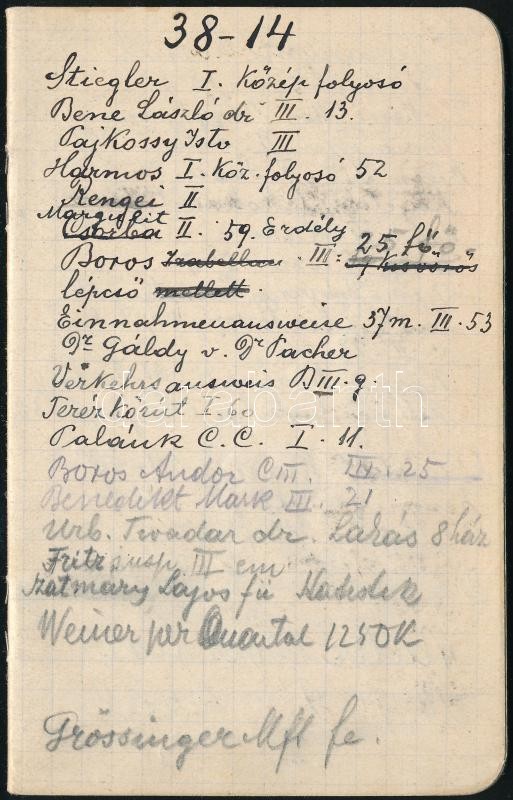 38-14
Stiegler I. Közép folyosó
Bene László dr III. 13.
Pajkossy Istv III
Harmos I. Köz. folyosó 52
Rengei II
Margit
Csorba II. 59. Erdély
Boros Izabella III. 25. fű
lépcső mellett.
Einnahmenausweise 37m. III. 53
Dr Gáldy v. Dr Pacher
Verkehrsausweis B III. 9.
Teréz körút I. 60
Palánk C.C. I. 11.
Boros Andor C III. III. 25
Benedikt Mark III. 21
Urb. Tivadar dr. Lakás 8 ház
Fritz insp. III em
Szatmáry Lajos fü
Weiner per Quartal 1250K
Grössinger
darabanth